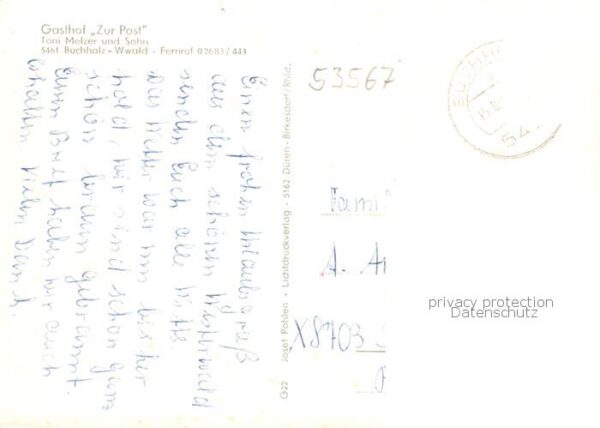 Gasthof „Zur Post"
Toni Melzer und Sohn
5461 Buchholz - Wwald - Fernruf 02683/443
Einen frohen Urlaubsgruß
aus dem schönen Westerwald
senden Euch alle
das Wetter war nun bisher
hold, wir sind schon ganz
schön braun gebrannt.
Euren Brief haben wir auch
erhalten. Vielen Dank
G22 Josef Pohlen - Lichtdruckverlag - 5162 Düren - Birkesdorf/Rhld.
53567
BUCHH
54
Fami
A. A
X8703
privacy protection
Datenschutz